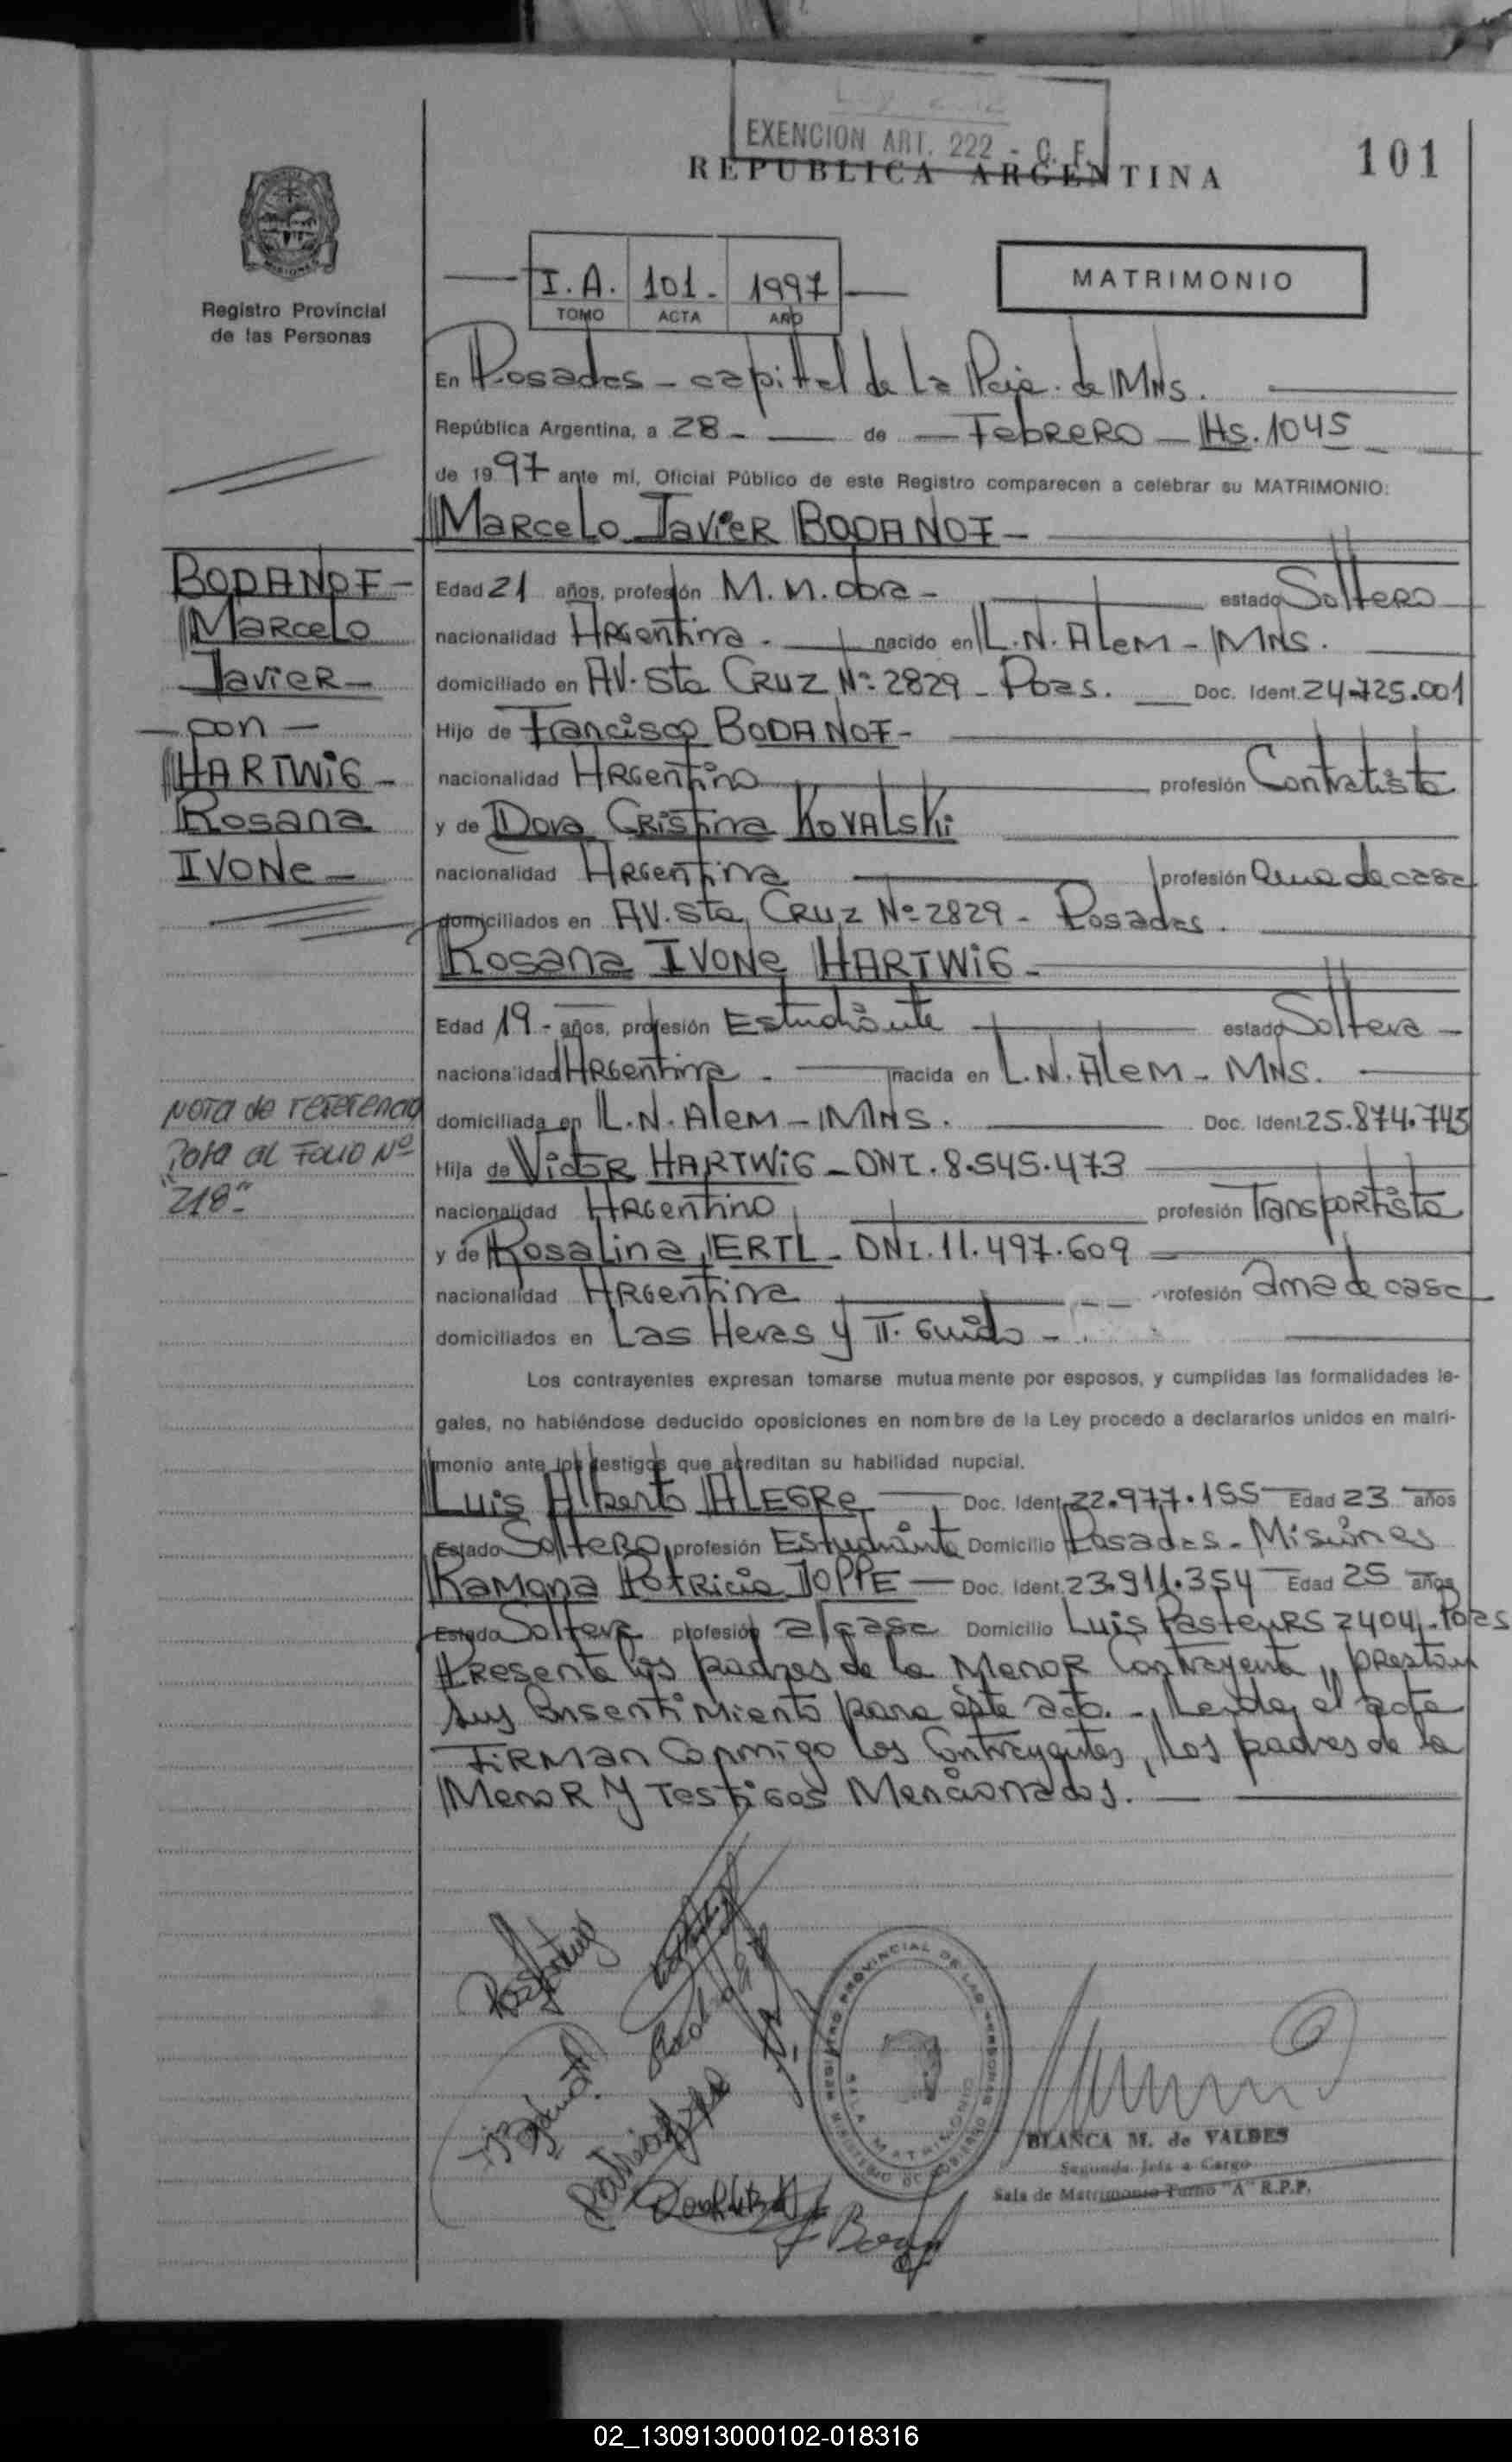 EXENCION ART. 222 - C. F.
REPUBLICA ARGENTINA
101
MISIONES
Registro Provincial
de las Personas
I. A. 101- 1997
TOMO ACTA AÑO
MATRIMONIO
En Posadas - capital de La Pcia. de MNs.
República Argentina, a 28 - de Febrero - Hs. 1045
de 1997 ante mí, Oficial Público de este Registro comparecen a celebrar su MATRIMONIO:
Marcelo Javier BODANOF -
BODANOF -
Marcelo
Javier -
con -
HARTWIG -
Rosana
IVONe -
Edad 21 años, profesión M. M. obra - estado Soltero
nacionalidad Argentina - nacido en L. N. Alem - MNS.
domiciliado en AV. Sta CRUZ Nº 2829 - Pdas. Doc. Ident. 24.725.001
Hijo de Francisco BODANOF -
nacionalidad Argentino profesión Contratista
y de Dora Cristina KOVALSKi
nacionalidad Argentina profesión ama de casa
domiciliados en AV. Sta. CRUZ Nº 2829 - Posadas.
Rosana IVONe HARTWiG -
Edad 19 - años, profesión Estudiante estado Soltera -
nacionalidad Argentina - nacida en L. N. Alem - MNS.
domiciliada en L. N. Alem - MNS. Doc. Ident. 25.874.745
Hija de Victor HARTWiG - DNI. 8.545.473
nacionalidad Argentino profesión Transportista
y de Rosalina ERTL - DNI. 11.497.609
nacionalidad Argentina profesión ama de casa
domiciliados en Las Heras y T. Guido -
Nota de referencia
Pasa al Folio Nº
"218"-
Los contrayentes expresan tomarse mutuamente por esposos, y cumplidas las formalidades le-
gales, no habiéndose deducido oposiciones en nombre de la Ley procedo a declararlos unidos en matri-
monio ante los testigos que acreditan su habilidad nupcial.
Luis Alberto ALEGRe Doc. Ident. 22.977.155 Edad 23 años
Estado Soltero profesión Estudiante Domicilio Posadas - Misiones
Ramona Patricia JOPPE - Doc. Ident. 23.911.354 Edad 25 años
Estado Soltera profesión a/casa Domicilio Luis PasteuRS 2404 - Pdas
Presente los padres de la Menor Contrayente, prestan
sus Consentimiento para éste acto. - Leída el acta
FiRMan Conmigo los Contrayentes, los padres de la
MenoR y Testigos Mencionados.
REGISTRO PROVINCIAL DE LAS PERSONAS
MINISTERIO DE GOBIERNO
SALA MATRIMONIO
BLANCA M. de VALDES
Segunda Jefa a Cargo
Sala de Matrimonio Turno "A" R.P.P.
02_130913000102-018316